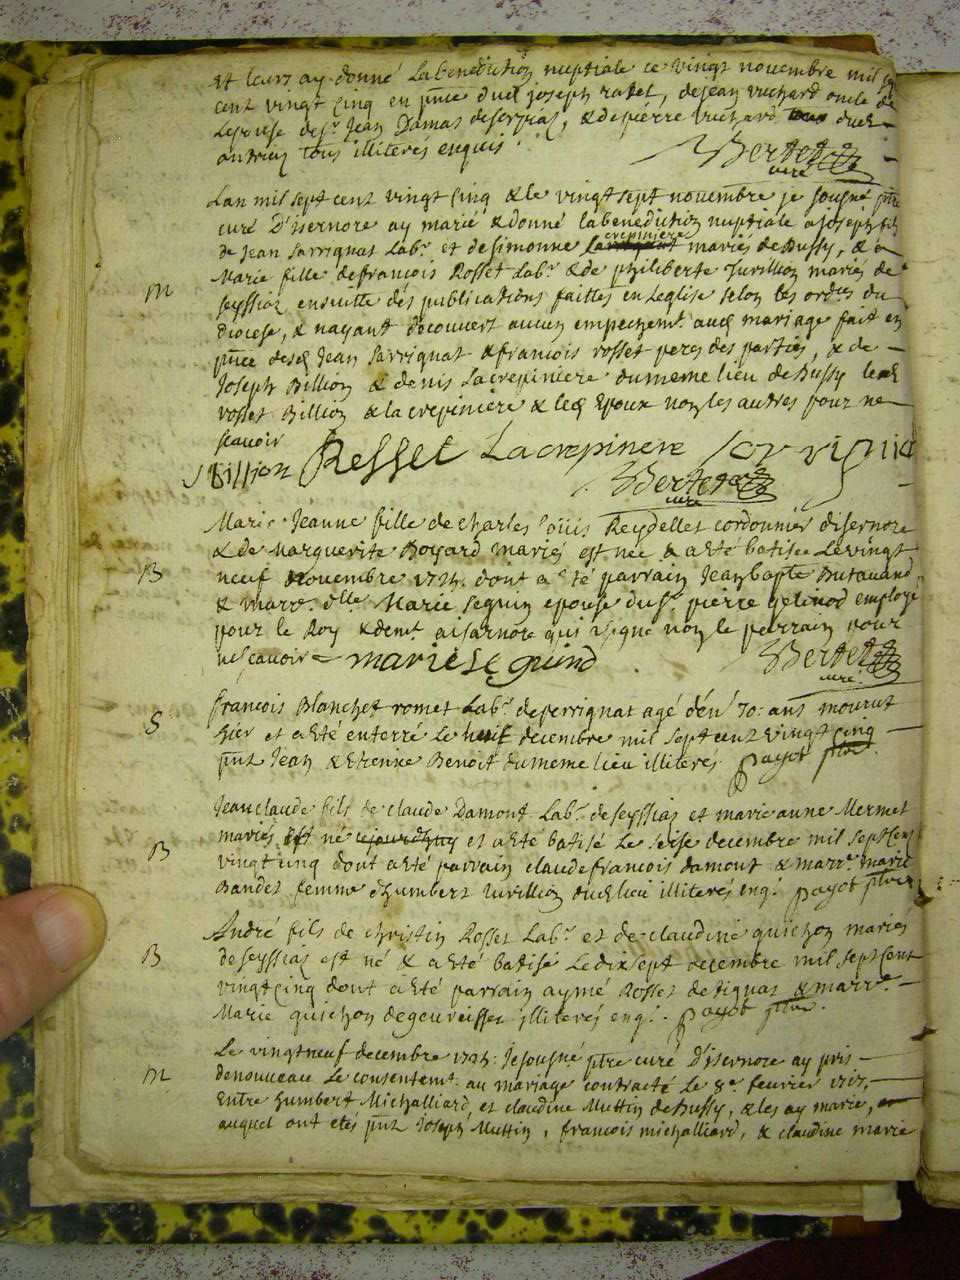 et leurs ay donné la benediction nuptiale ce vingt novembre mil
cent vingt cinq en pnce dud joseph ravet, de jean vuchard oncle de
lepouse de sr jean Damas de serrias, & de pierre vuchard dud
tous illiteres enquis.
Bertet
curé
Lan mil sept cent vingt cinq & le vingt sept novembre je sousné ptre
curé D'isernore ay marié & donné la benediction nuptiale a joseph fils
crepiniere
de jean sarrignat Labr et de simonne mariés de Bussy, & a
Marie fille de francois Rosset Labr & de philiberte Jurillion mariés de
M
seyssias ensuitte des publications faittes en Leglise selon les ordres du
diocese, & nayant decouvert aucun empechemt aud mariage fait en
pnce desd jean sarrignat & francois rosset peres des parties, & de
joseph Billion & denis Lacrepiniere du meme lieu de Bussy lesd
rosset Billion & lacrepiniere & led Epoux non les autres pour ne
scavoir
J Billion Resset Lacrepinere
Bertet
curé
Marie jeanne fille de charles Loüis Reydellet cordonnier disernore
& de Marguerite Boyard mariés est née & a été batisée Le vingt
B
neuf Novembre 1725. dont a été parrain jean bapte Butavand
& marr. dlle Marie seguin epouse du sr pierre gelinod employé
pour le Roy & demt a isarnore qui a signé non le parrain pour
ne scavoir marie seguind
Bertet
curé
francois Blanchet romet Labr de perrignat agé d'en 70. ans mourut
S
hier et a été enterré Le huit decembre mil sept cent vingt cinq
pnt jean & etienne Benoit du meme lieu illiteres. payot ptre.
jean claude fils de claude Damont Labr de seyssias et marie anne Mermet
mariés est né cejourdhuy et a été batisé Le seise decembre mil sept cent
B
vingt cinq dont a été parrain claude francois damont & marre marie
Bandet femme d'humbert Jurillion dud lieu illiteres enq. payot ptre
André fils de christin Rosset Labr et de claudine quichon mariés
B
de seyssias est né & a été batisé Le dix sept decembre mil sept cent
vingt cinq dont a été parrain aymé Rosset de tignat & marre
Marie quichon de geureisset illiteres enq. payot ptre.
Le vingt neuf decembre 1725. je sousné ptre curé D'isernore ay pris
M
denouveau Le consentemt au mariage contracté Le 8e feurier
Entre humbert Michalliard, et claudine Muttin de Bussy, & les ay marie,
auquel ont etés pnt joseph Muttin, francois michalliard, & claudine marie